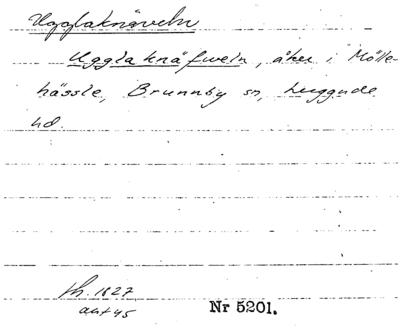 Ugglaknäveln
Ugglaknäfweln, åker i Mölle-
hässle, Brunnby sn, Luggude
hd.
th. 1827
akt 45
Nr 5201.